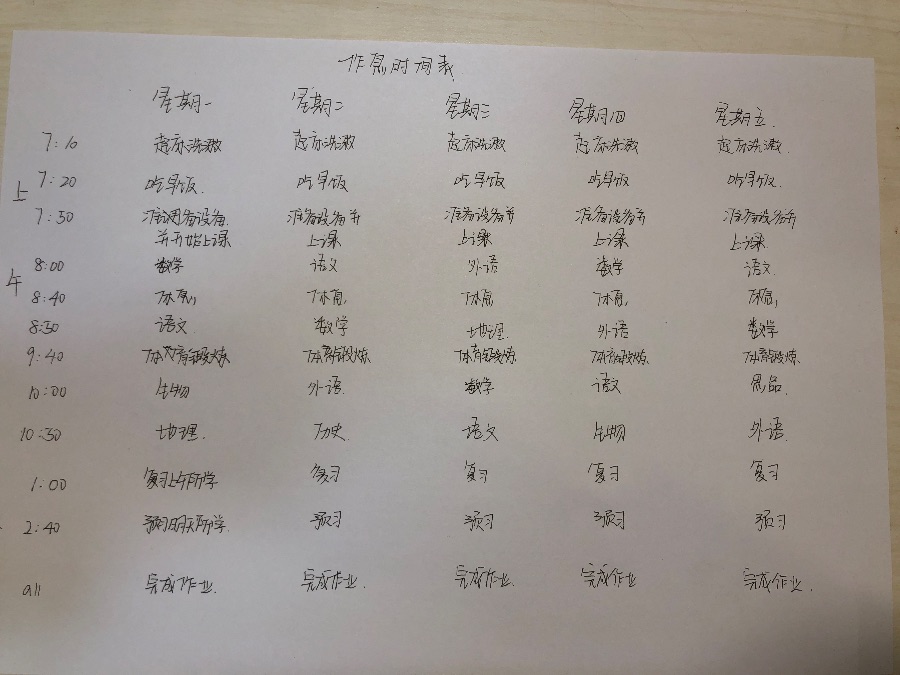 作息时间表
星期一 星期二 星期三 星期四 星期五
7:10 起床洗漱 起床洗漱 起床洗漱 起床洗漱 起床洗漱
上 7:20 吃早饭 吃早饭 吃早饭 吃早饭 吃早饭
7:50 准调备设备 准备设备并 准备设备并 准备设备并 准备设备并
并开始上课 上课 上课 上课 上课
午 8:00 数学 语文 外语 数学 语文
8:40 休息 休息 休息 休息 休息
8:50 语文 数学 地理 外语 数学
9:40 体育锻炼 体育锻炼 体育锻炼 体育锻炼 体育锻炼
10:00 生物 外语 数学 语文 思品
10:50 地理 历史 语文 生物 外语
1:00 复习上午所学 复习 复习 复习 复习
2:40 预习明天所学 预习 预习 预习 预习
all 完成作业 完成作业 完成作业 完成作业 完成作业